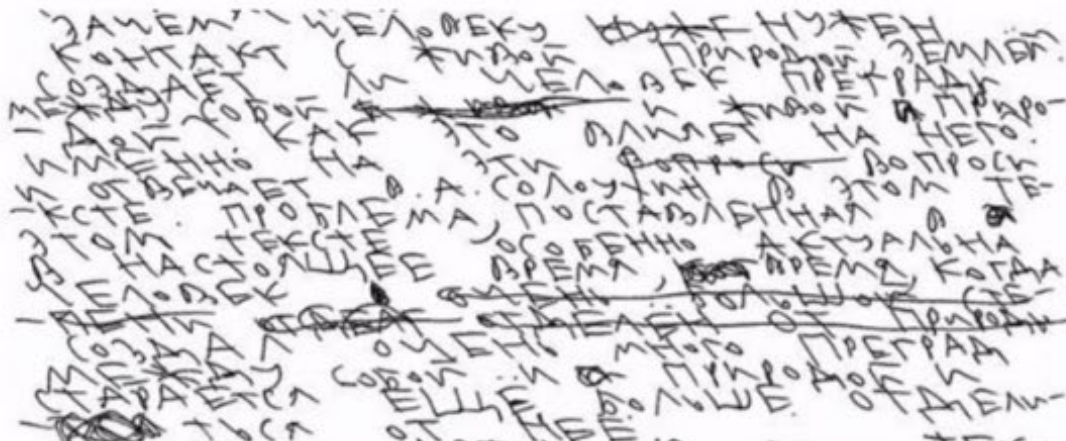 ЗАЧЕМ ЧЕЛОВЕКУ НУЖЕН
КОНТАКТ С ЖИВОЙ ПРИРОДОЙ, ЗЕМЛЁЙ.
СОЗДАЕТ ЛИ ЧЕЛОВЕК ПРЕГРАДЫ
МЕЖДУ СОБОЙ И ЖИВОЙ ПРИРО-
-ДОЙ? КАК ЭТО ВЛИЯЕТ НА НЕГО?
ИМЕННО НА ЭТИ ВОПРОСЫ
И ОТВЕЧАЕТ В.А. СОЛОУХИН В ЭТОМ ТЕ-
-КСТЕ. ПРОБЛЕМА, ПОСТАВЛЕННАЯ В
ЭТОМ ТЕКСТЕ, ОСОБЕННО АКТУАЛЬНА
В НАСТОЯЩЕЕ ВРЕМЯ, ВРЕМЯ, КОГДА
ЧЕЛОВЕК
СОЗДАЛ ОЧЕНЬ МНОГО ПРЕГРАД
МЕЖДУ СОБОЙ И ПРИРОДОЙ И
СТАРАЕТСЯ ЕЩЕ БОЛЬШЕ ОТДЕЛИ-
-ТЬСЯ ОТ НЕЕ.